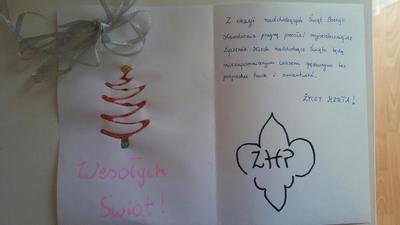 Wesołych
Świąt!
Z okazji nadchodzących Świąt Bożego
Narodzenia pragnę przesłać najserdeczniejsze
życzenia. Niech nadchodzące Święta będą
niezapomnianym czasem spędzonym bez
pośpiechu, trosk i zmartwień.
ŻYCZY MARTA!
ZHP